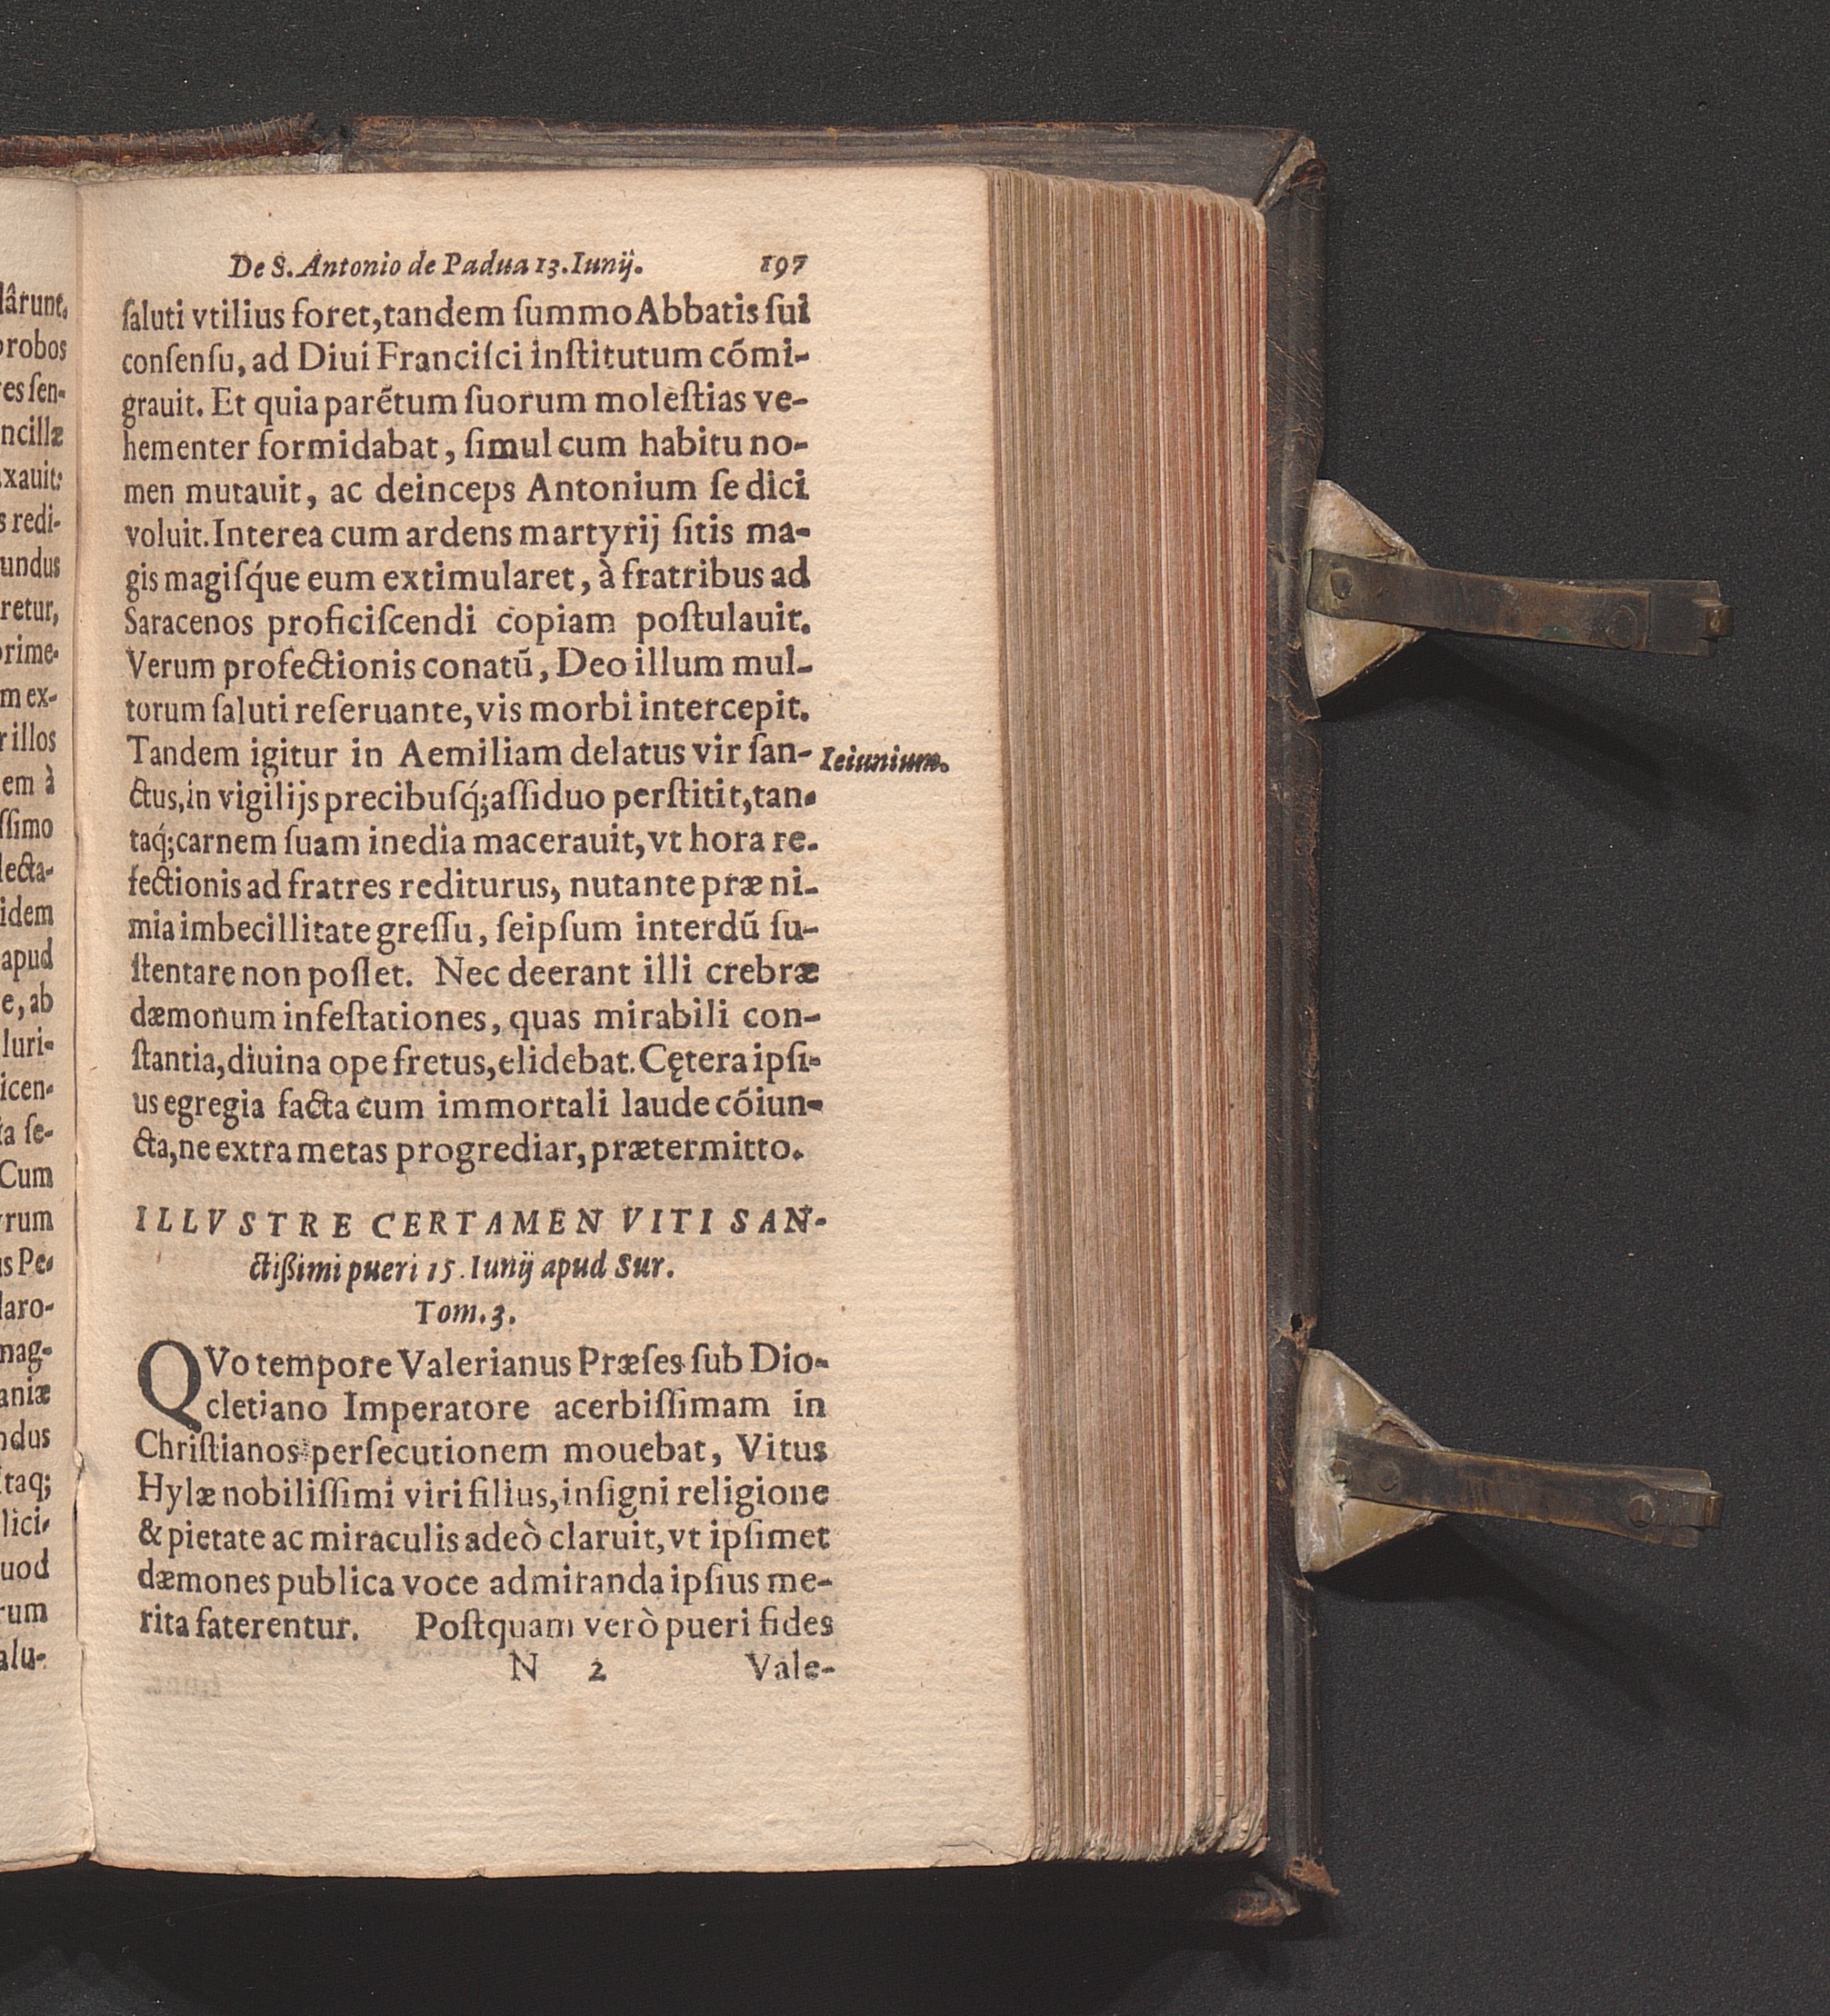 De S. Antonio de Padua 13. Iunij. 197
ſaluti vtilius foret, tandem ſummo Abbatis ſui
conſenſu, ad Diui Franciſci inſtitutum cõmi-
grauit. Et quia parẽtum ſuorum moleſtias ve-
hementer formidabat, ſimul cum habitu no-
men mutauit, ac deinceps Antonium ſe dici
voluit. Interea cum ardens martyrij ſitis ma-
gis magiſq́ue eum extimularet, à fratribus ad
Saracenos proficiſcendi copiam poſtulauit.
Verum profectionis conatũ, Deo illum mul-
torum ſaluti reſeruante, vis morbi intercepit.
Tandem igitur in Aemiliam delatus vir ſan-
Ieiunium.
ctus, in vigilijs precibuſq́; aſſiduo perſtitit, tan-
taq́; carnem ſuam inedia macerauit, vt hora re-
fectionis ad fratres rediturus, nutante præ ni-
mia imbecillitate greſſu, ſeipſum interdũ ſu-
ſtentare non poſſet. Nec deerant illi crebræ
dæmonum infeſtationes, quas mirabili con-
ſtantia, diuina ope fretus, elidebat. Cętera ipſi-
us egregia facta cum immortali laude cõiun-
cta, ne extra metas progrediar, prætermitto.
ILLVSTRE CERTAMEN VITI SAN-
ctißimi pueri 15. Iunij apud Sur.
Tom. 3.
QVo tempore Valerianus Præſes ſub Dio-
cletiano Imperatore acerbiſſimam in
Chriſtianos perſecutionem mouebat, Vitus
Hylæ nobiliſſimi viri filius, inſigni religione
& pietate ac miraculis adeò claruit, vt ipſimet
dæmones publica voce admiranda ipſius me-
rita faterentur. Poſtquam verò pueri fides
N 2 Vale-